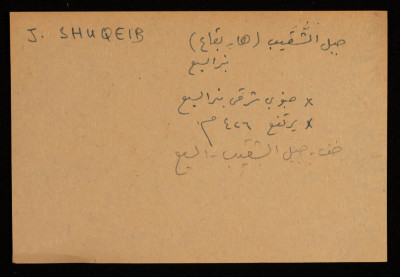 J. SHUQEIB
جبل الشُّقَيب (هاء بقاع)
بئر السبع
× جنوبي شرقي بئر السبع
× يرتفع ٤٢٦ م
جبل الشقيب - السبع